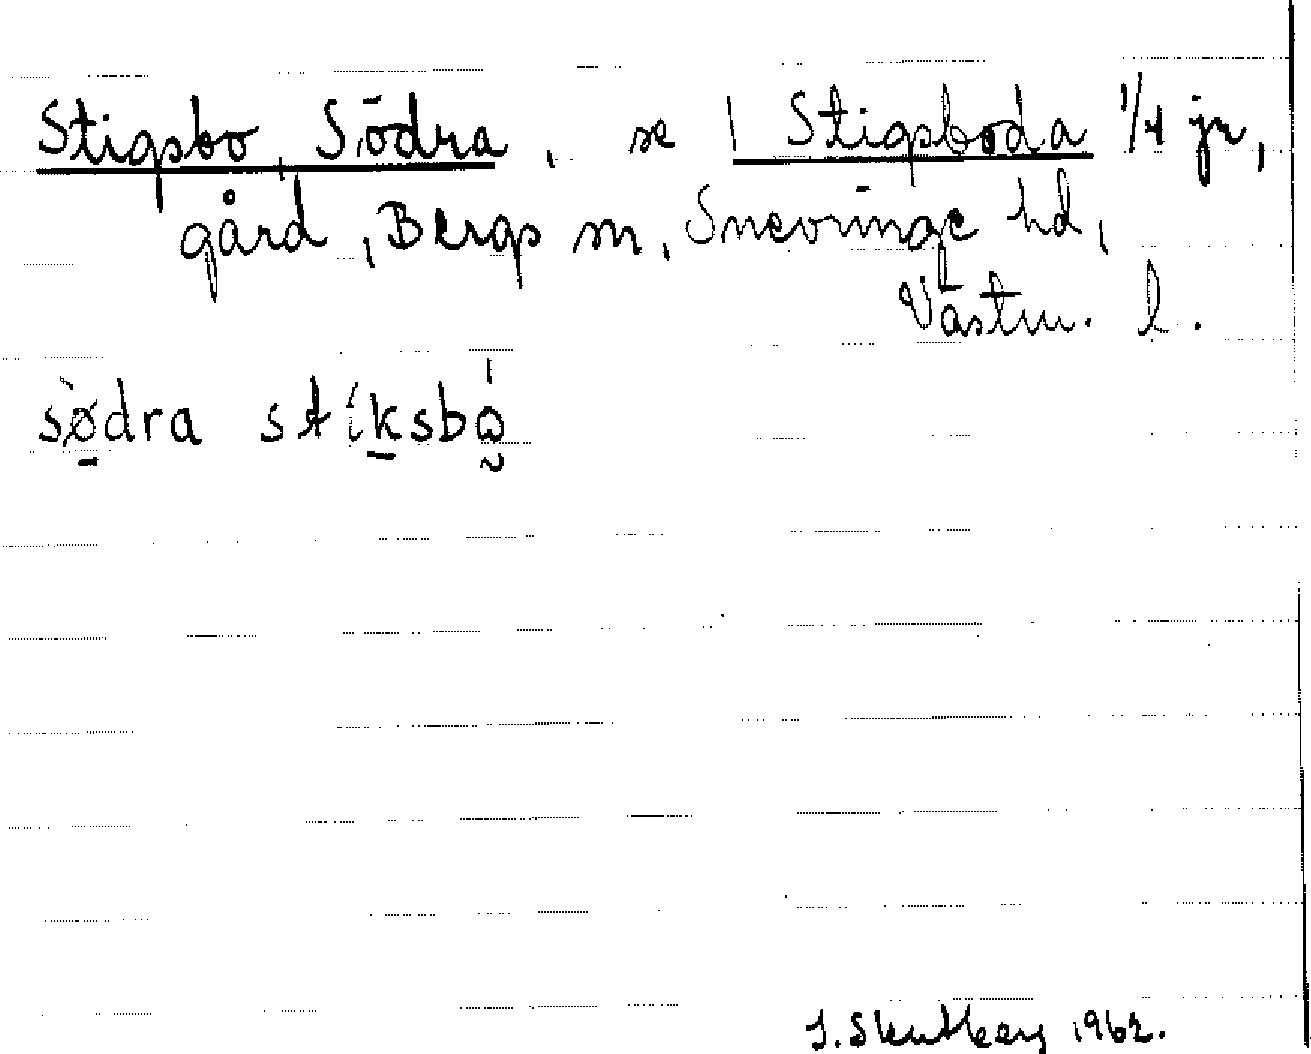 Stigsbo, Södra, se 1 Stigsboda 1/4 jr,
gård, Bergs sn, Snevringe hd,
Västm. l.
sø̀dra stíksbὼ
1962.